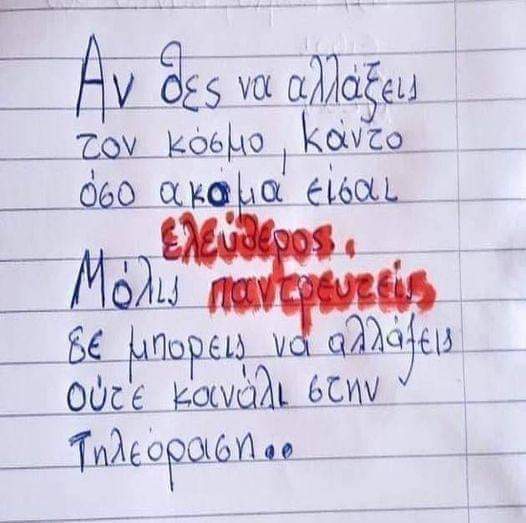 Αν θες να αλλάξεις
τον κόσμο, κάντο
όσο ακόμα είσαι
ελεύθερος.
Μόλις παντρευτείς
δε μπορεις να αλλάξεις
ούτε κανάλι στην
Τηλεόραση..